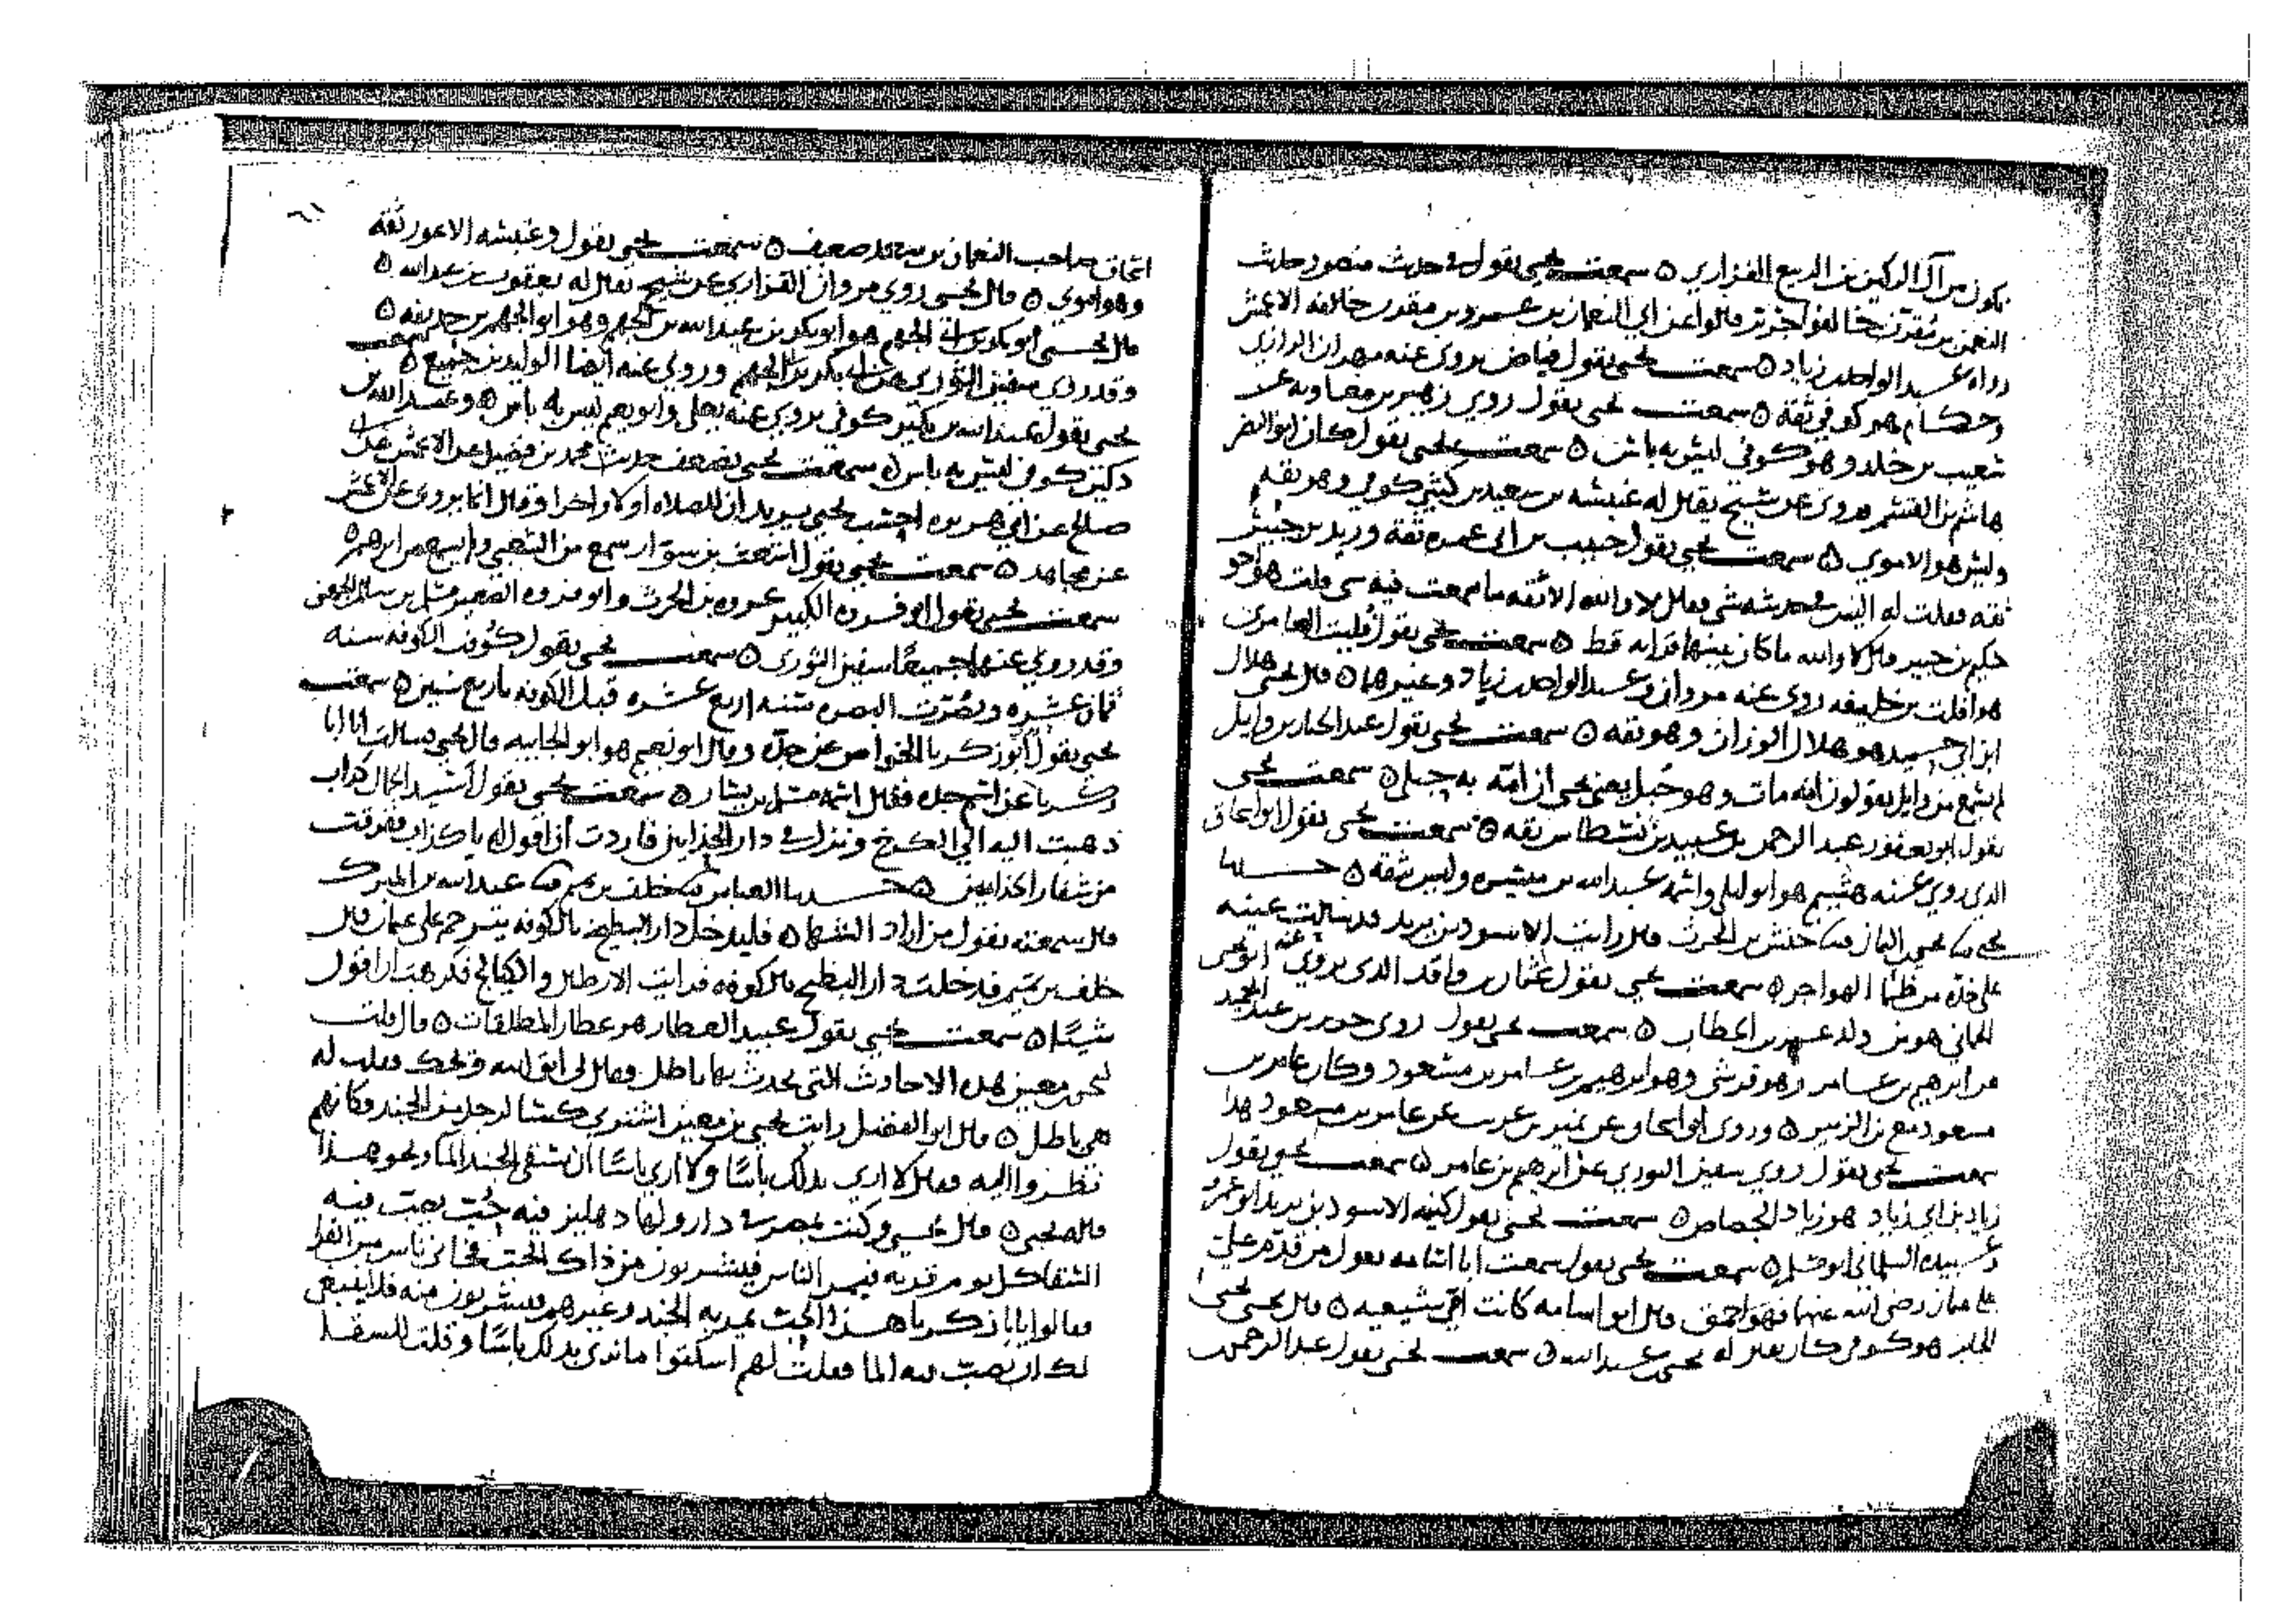 يكون من آل الركين بن الربيع الفزاري ه سمعت يحيى يقول في حديث منصور حديث
النعمن بن مقرن يخالفوا جرير قالوا عن ابي النعمان بن عمرو بن مقرن خالفه الاعمش
رواه عبد الواحد بن زياد ه سمعت يحيى يقول فياض يروي عنه مهران الرازي
وحكام هو كوفي ثقة ه سمعت يحيى يقول روى زهير بن معاويه عن
شعيب بن خلد وهو كوفي ليس به باس ه سمعت يحيى يقول كان ابو النضر
هاشم بن القسم يروي عن شيخ يقال له عنبسه بن سعيد بن كثير كوفي وهو ثقه
وليس هو الاموي ه سمعت يحيى يقول حبيب بن ابي عمره ثقة وزيد بن جبير
ثقه فقلت له اليس في حديثه شي فقال لا والله الا ثقه ما سمعت فيه شي قلت هو اخو
حكيم بن جبير قال لا والله ما كان بينهما قرابه قط ه سمعت يحيى يقول فليت العامري
هو افلت بن خليفه روى عنه مروان وعبد الواحد بن زياد وغيرهما ه قال يحيى هلال
ابن ابي حميد هو هلال الوزان وهو ثقه ه سمعت يحيى يقول عبد الجبار بن وايل
لم يسمع من وايل يقولون انه مات وهو حبل يعني يحيى ان امه به حبلى ه سمعت يحيى
يقول ابو يعفور عبد الرحمن بن عبيد بن نسطاس ثقه ه سمعت يحيى يقول ابو اسحاق
الذي روى عنه هشيم هو ابو ليلى واسمه عبد الله بن ميسره وليس بثقة ه حدثنا
يحيى نا يحيى اليمان نا حنش بن الحرث قال رايت الاسود بن يزيد قد سالت عينه
على خده من ظما الهواجر ه سمعت يحيى يقول عثمان بن واقد الذي يروي عنه ابو يحيى
الحماني هو من ولد عمر بن الخطاب ه سمعت يحيى يقول روى جرير بن عبد الحميد
عن ابرهيم بن عامر وهو قرشي وهو ابرهيم بن عامر بن مسعود وكان عامر بن
مسعود مع بن الزبير ه وروى ابو اسحاق عن نمير بن عريب عن عامر بن مسعود هذا
سمعت يحيى يقول روى سفين الثوري عن ابرهيم بن عامر ه سمعت يحيى يقول
زياد بن ابي زياد هو زياد الجصاص ه سمعت يحيى يقول كنيه الاسود بن يزيد ابو عمرو
وعبيده السلماني ابو مسلم ه سمعت يحيى يقول سمعت ابا اسامه يقول من قدم علي
على عثمان رضي الله عنهما فهو احمق قال ابو اسامه كانت امي شيعيه ه قال يحيى يحيى
الجابر هو كوفي كان يقال له يحيى عبد الله ه سمعت يحيى يقول عبد الرحمن
اسحاق صاحب النعمان بن سعد ضعيف ه سمعت يحيى يقول وعنبسه الاعور ثقه
وهو اموي ه قال يحيى روى مروان الفزاري عن شيخ يقال له يعقوب بن عبد الله ه
قال يحيى ابو بكر بن ابي الجهم هو ابو بكر بن عبد الله بن ابي الجهم وهو ابو الجهم بن حذيفه ه
وقد روى سفين الثوري عن ابي بكر بن ابي الجهم وروى عنه ايضا الوليد بن جميع ه سمعت
يحيى يقول عبد الله بن بكير كوفي يروي عنه يعلى وابو نعيم ليس به باس ه وعبد الله بن
دكين كوفي ليس به باس ه سمعت يحيى يضعف حديث محمد بن فضيل عن الاعمش عن ابي
صالح عن ابي هريره احسب يحيى يريد ان للصلاه اولا واخرا وقال انما يروى عن الاعمش
عن مجاهد ه سمعت يحيى يقول اشعث بن سوار سمع من الشعبي ولم يسمع من ابرهيم ه
سمعت يحيى يقول ابو فروه الكبير عروه بن الحرث وابو فروه الصغير مسلم بن سالم الجهني
وقد روى عنهما جميعا سفين الثوري ه سمعت يحيى يقول كوفت الكوفه سنه
ثمان عشره وبصرت البصره سنه اربع عشره قبل الكوفه باربع سنين ه سمعت
يحيى يقول ابو زكريا الخواص عن رجل وقال ابو نعيم هو ابو الجابيه قال يحيى وسالت انا ابا
زكريا عن اسم رجل فقال اسمه مسلم بن يسار ه سمعت يحيى يقول اسيد الجمال كذاب
ذهبت اليه الى الكرخ ونزل في دار الحذايين فاردت ان اقول له يا كذاب ففرقت
من شفار الحذايين ه حدثنا العباس نا خلف بن تميم نا عبد الله بن المبرك
قال سمعته يقول من اراد الشهاده فليدخل دار البطيخ بالكوفه يترحم على عثمان قال
خلف بن تميم فدخلت دار البطيخ بالكوفه فرايت الارطال والكيالج فكرهت ان اقول
شيئا ه سمعت يحيى يقول عبيد العطار هو عطار المطلقات ه قال قلت
ليحيى بن معين هذه الاحاديث التي يحدث بها باطل فقال لي اتق الله ويحك فقلت له
هي باطل ه قال ابو الفضل رايت يحيى بن معين اشترى كبشا لرجل من الجند فكانهم
نظروا اليه فقال لا ارى بذلك باسا ولا ارى باسا ان يسقى الجند الما ونحو هذا
قال يحيى ه قال يحيى وكنت بمصر في دار ولها دهليز فيه جب يصب فيه
السقا كل يوم قربه فيمر الناس فيشربون من ذاك الجب فجاني ناس من القرا
فقالوا يا با زكريا هذا الجب يمر به الجند وغيرهم فيشربون منه فلا ينبغي
لك ان تصب فيه الما فقلت لهم اسكتوا ما نرى بذلك باسا وقلت للسقا